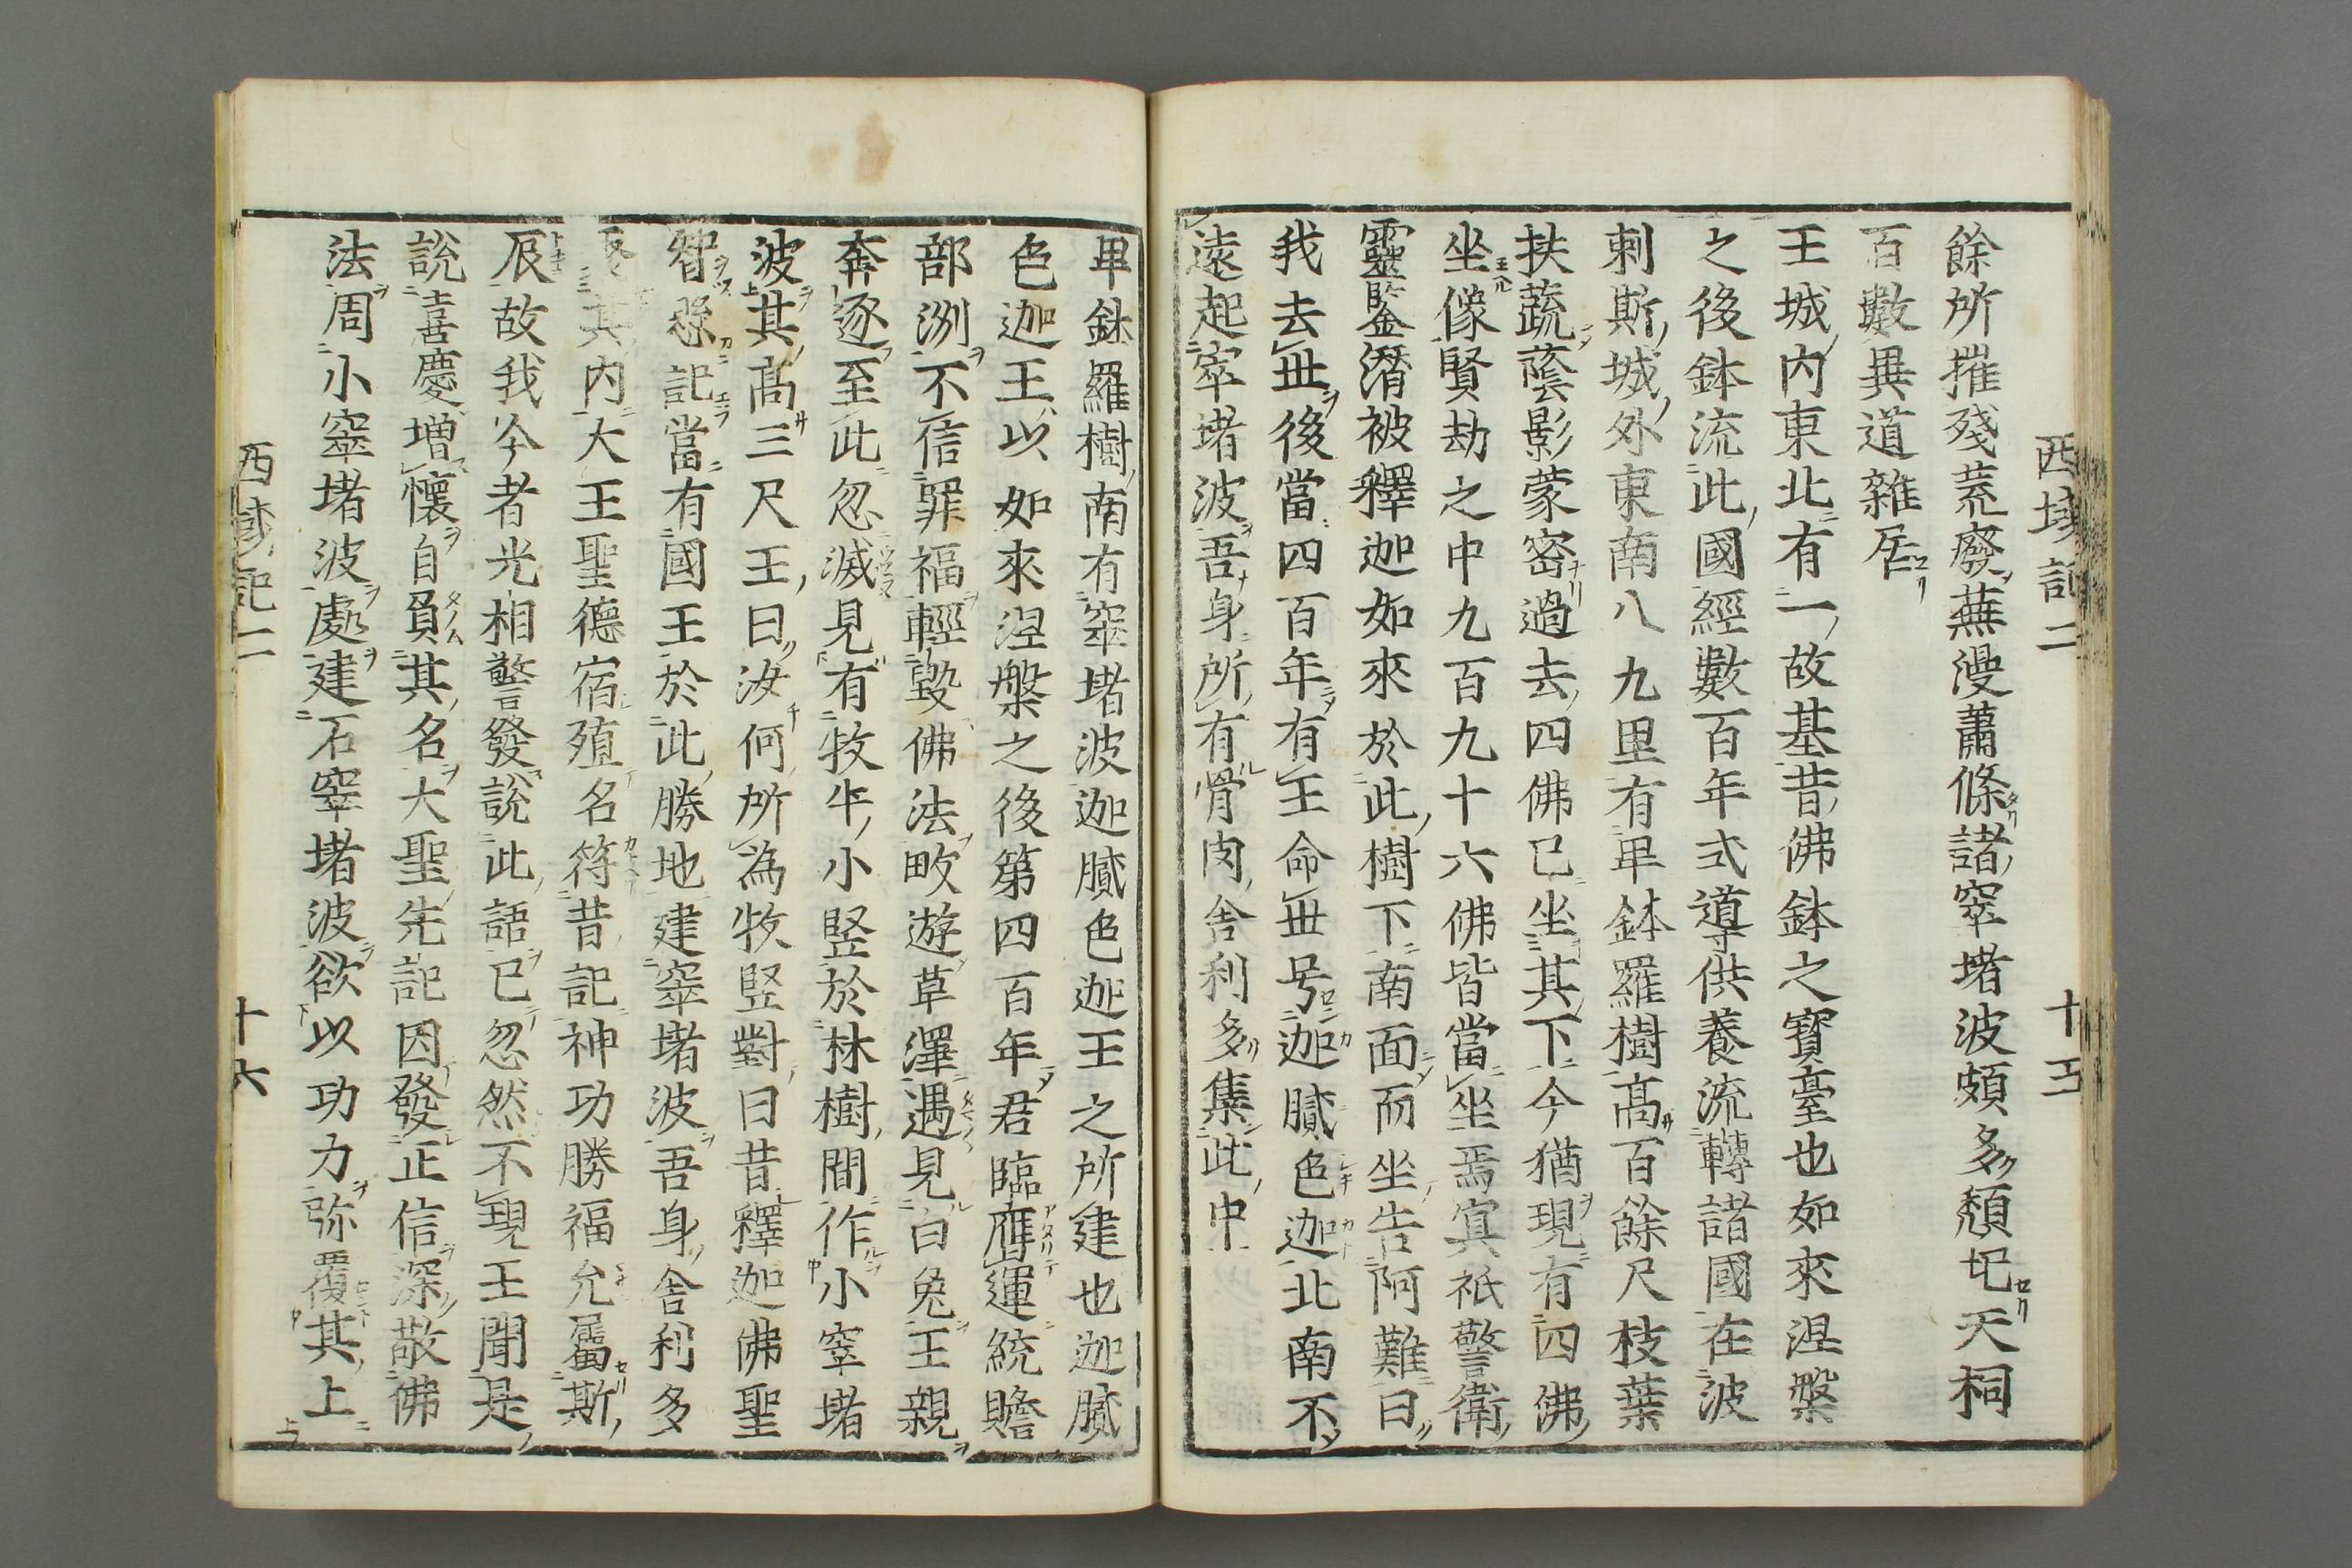 西域記二
十五
餘所摧殘荒廢蕪漫蕭條諸窣堵波頗多頹圮天祠
百數異道雜居
王城內東北有一故基昔佛鉢之寶臺也如來涅槃
之後鉢流此國經數百年式導供養流轉諸國在波
剌斯城外東南八九里有卑鉢羅樹高百餘尺枝葉
扶蔬蔭影蒙密過去四佛已坐其下今猶現有四佛
坐像賢劫之中九百九十六佛皆當坐焉冥祇警衛
靈鑒潛被釋迦如來於此樹下南面而坐告阿難曰
我去世後當四百年有王命世号迦膩色迦北南不
遠起窣堵波吾身所有骨肉舍利多集此中
卑鉢羅樹南有窣堵波迦膩色迦王之所建也迦膩
色迦王以如來涅槃之後第四百年君臨膺運統贍
部洲不信罪福輕毀佛法畋遊草澤遇見白兔王親
奔逐至此忽滅見有牧牛小竪於林樹間作小窣堵
波其高三尺王曰汝何所為牧竪對曰昔釋迦佛聖
智懸記當有國王於此勝地建窣堵波吾身舍利多
聚其內大王聖德宿殖名符昔記神功勝福允屬斯
辰故我今者光相警發說此語已忽然不現王聞是
說喜慶增懷自負其名大聖先記因發正信深敬佛
法周小窣堵波處建石窣堵波欲以功力弥覆其上
西域記二
十六